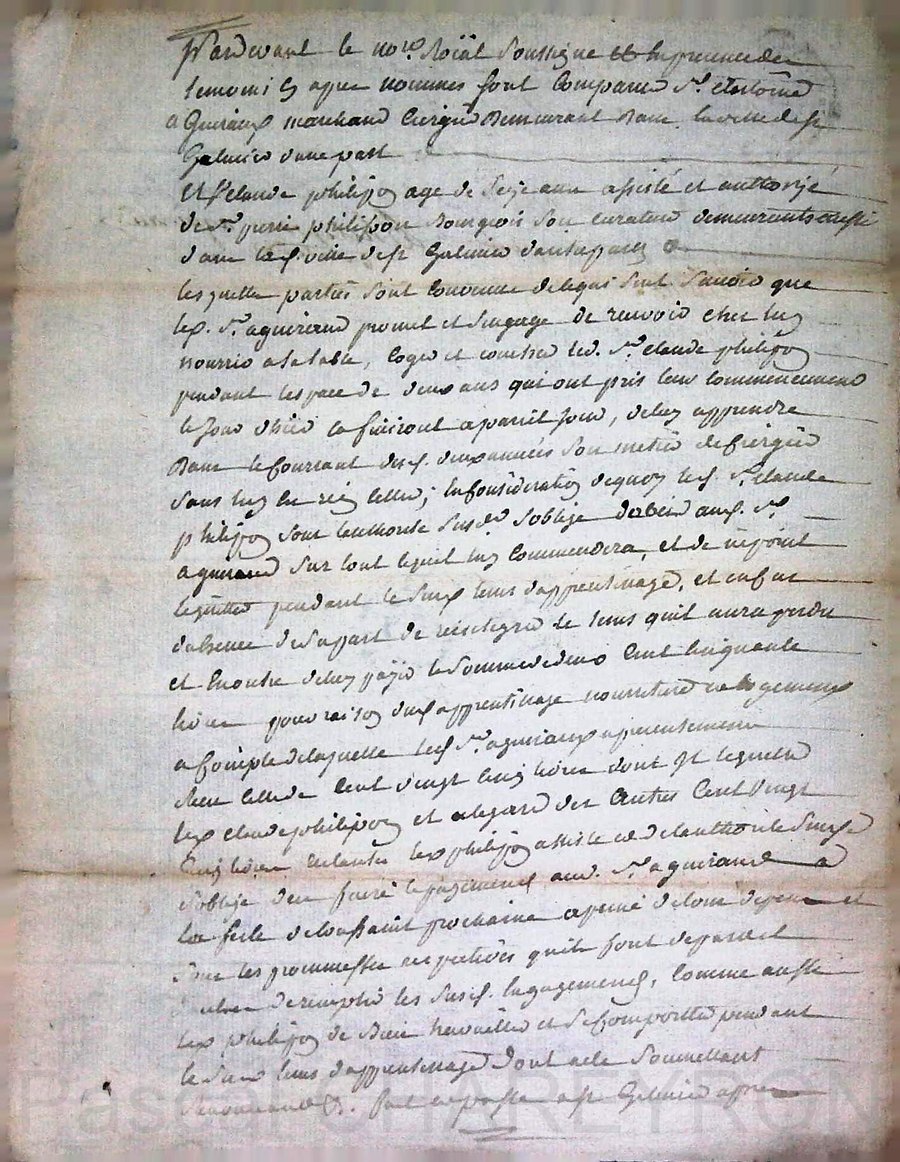 Pardevant le no.re Roïal soussigné et en presence des
temoins apres nommes sont comparus S.r Antoine
Aguiraud marchand Ciergier demeurant dans la ville de S.t
Galmier d'une part
Et S.r Claude philipon age de seize ans assisté et authorizé
de S.r pierre philipon Bourgeois son curateur demeurants aussi
dans lad. ville de S.t Galmier d'autre part
lesquelles parties sont convenue de ce qui suit savoir que
led. S.r aguiraud promet et s'engage de recevoir chez luy
nourrir a sa table, loger et coucher led. S.r Claude philipon
pendant l'espace de deux ans qui ont pris leur commencement
le jour d'hier et finiront a pareil jour, de luy apprendre
dans le courant desd. deux années son metier de Ciergier
sans luy en rien celler; en considération de quoy led. S.r Claude
philipon sous l'authorité susd. s'oblige d'obeir aud. S.r
aguiraud sur tout ce qu'il luy commendera, et de ne point
le quitter pendant le susd. tems d'apprentissage, et en cas
d'absence de sa part de le tems qu'il aura perdu
et en outre de luy païer la somme de deux cent cinquante
livres pour raison dud. apprentissage nourriture et logement
a compte de laquelle led. S.r aguiraud a presentement
Receu celle de cent vingt cinq livres dont il quitte
led. Claude philipon et a legard des autres cent vingt
cinq livres restantes led. philipon assisté et de l'authorité susd.
s'oblige d'en faire le payement aud. S.r aguiraud a
la fete de toussaint prochaine a peine de tous depens et
sous les promesses respectives qu'ils font de part et
d'autre de remplir les susd. engagements, comme aussi
led. philipon de bien travailler et se comporter pendant
le susd. tems d'apprentissage Dont acte soumettant
Renonceant &. Fait et passé a S.t Galmier apres
Pascal CHARLEYRON